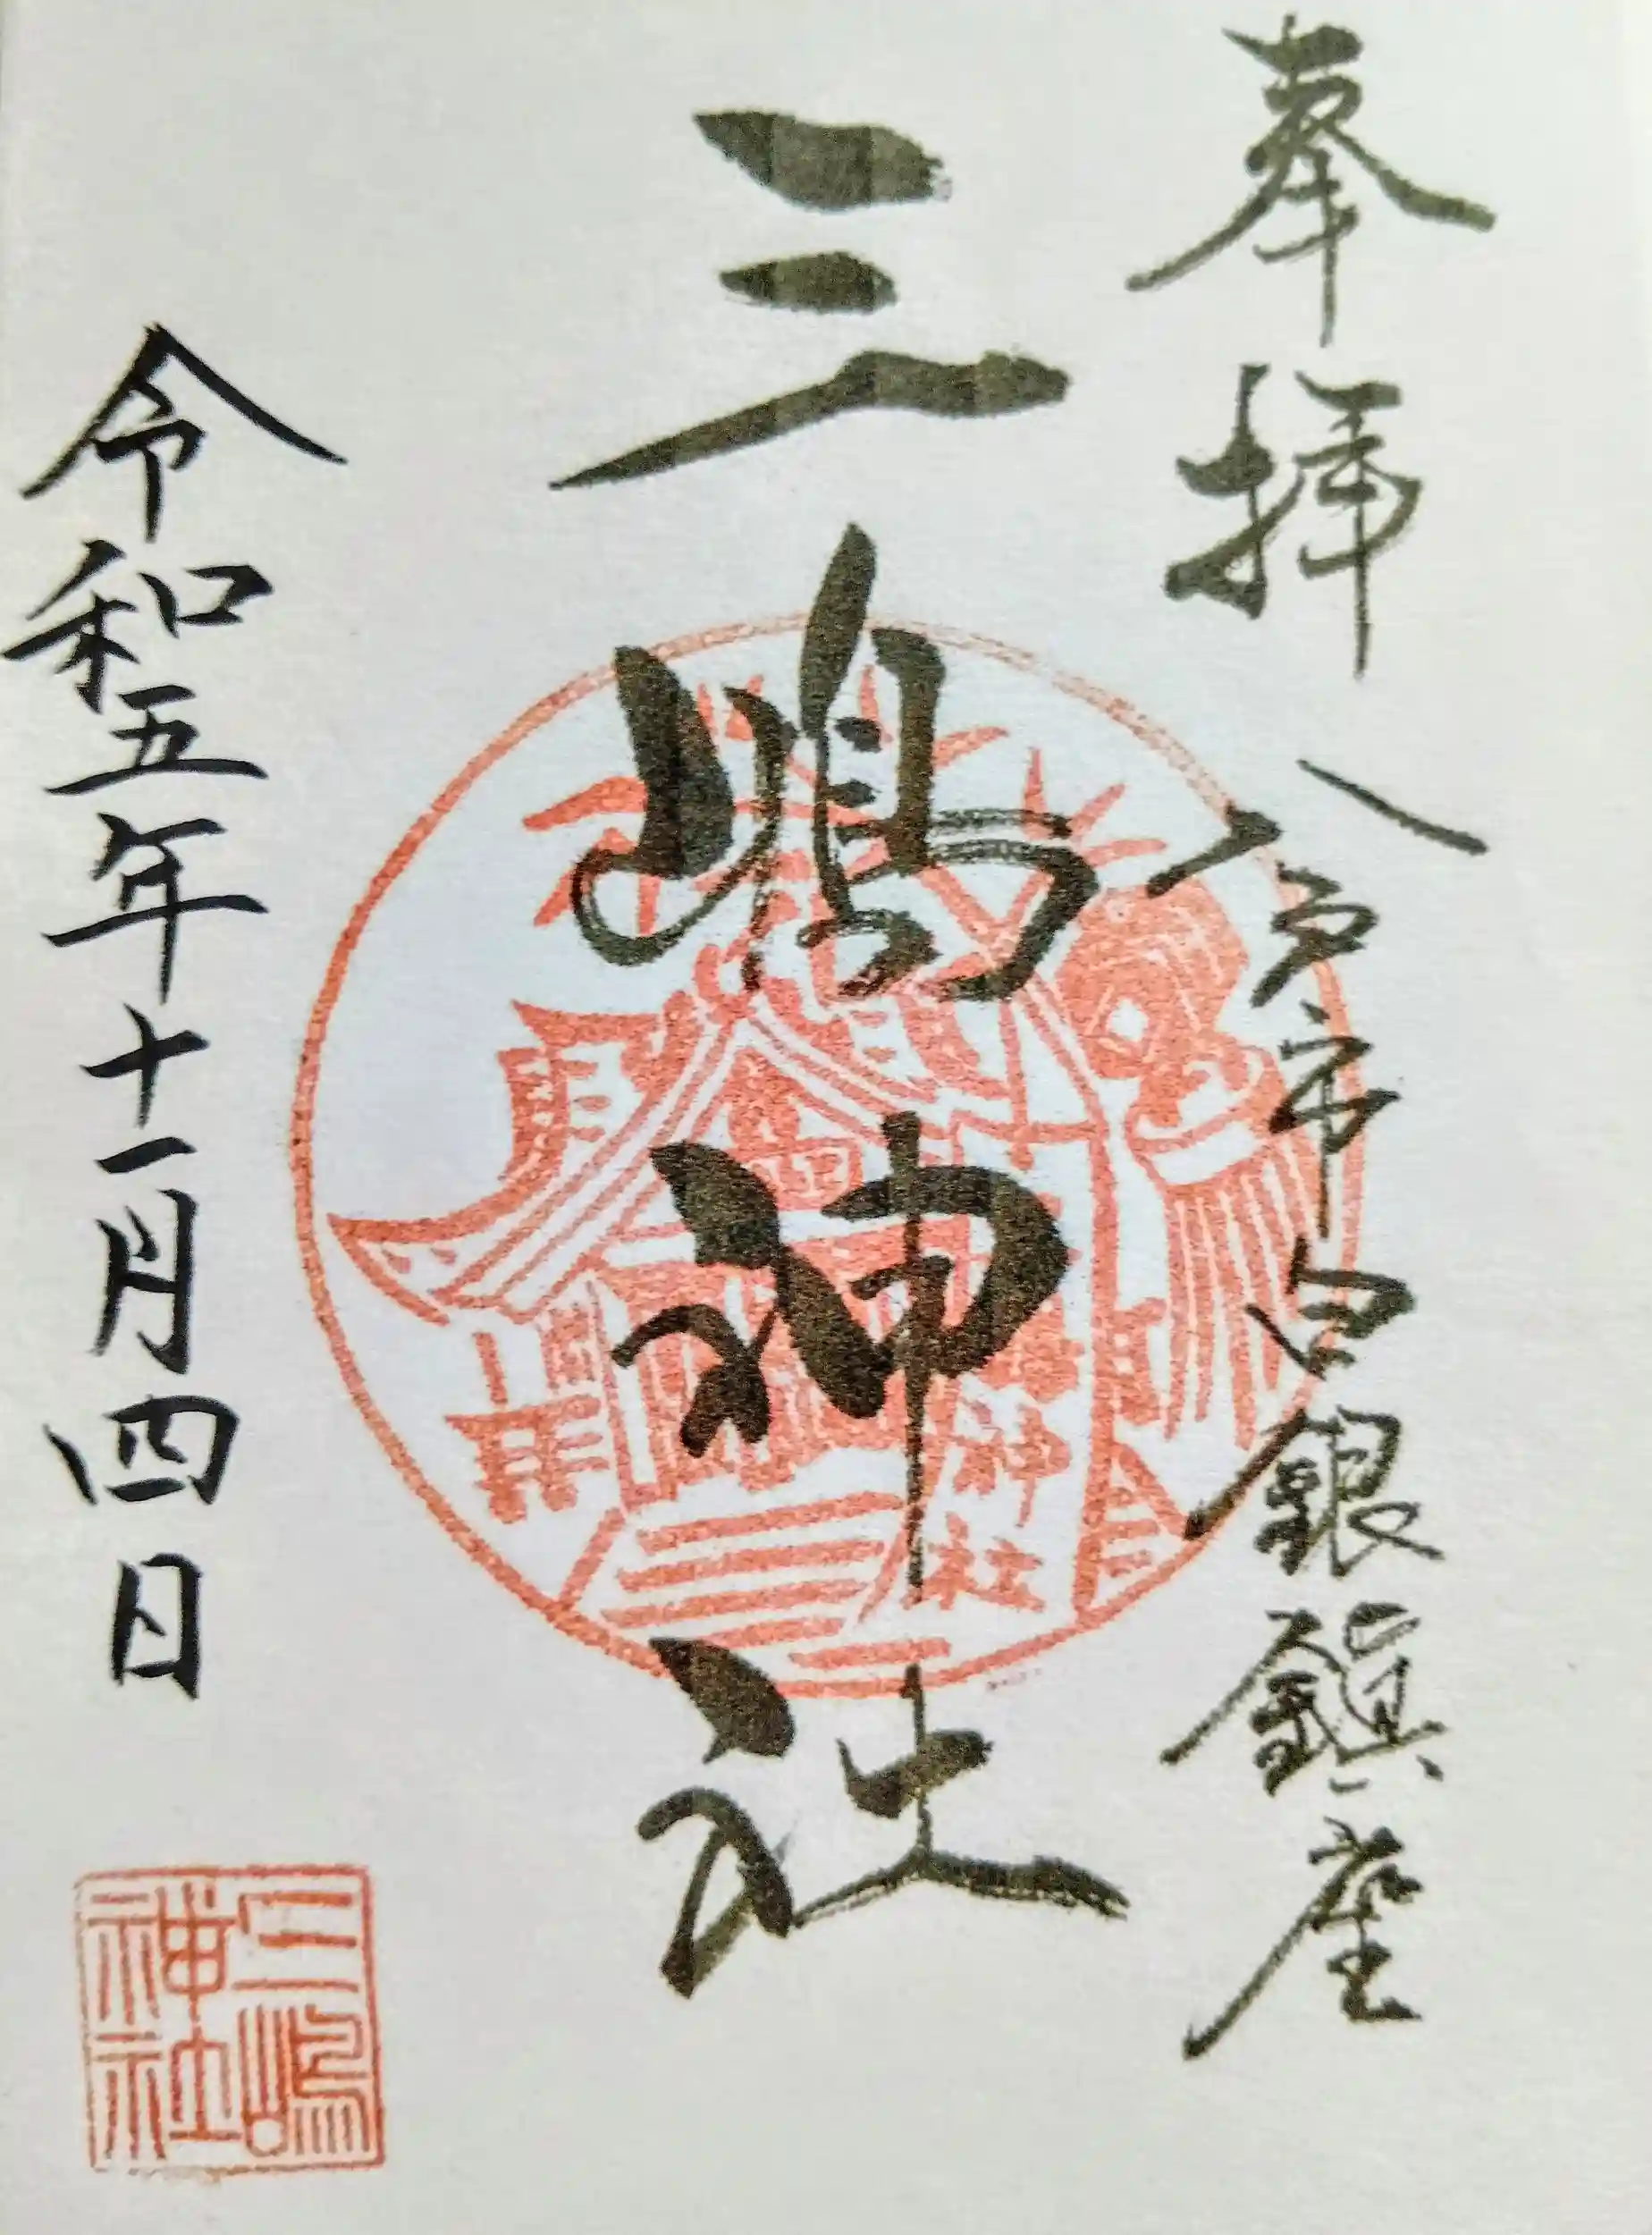 奉拝
八戸市白銀鎮座
三嶋神社
令和五年十一月四日
三嶋
神社
神社